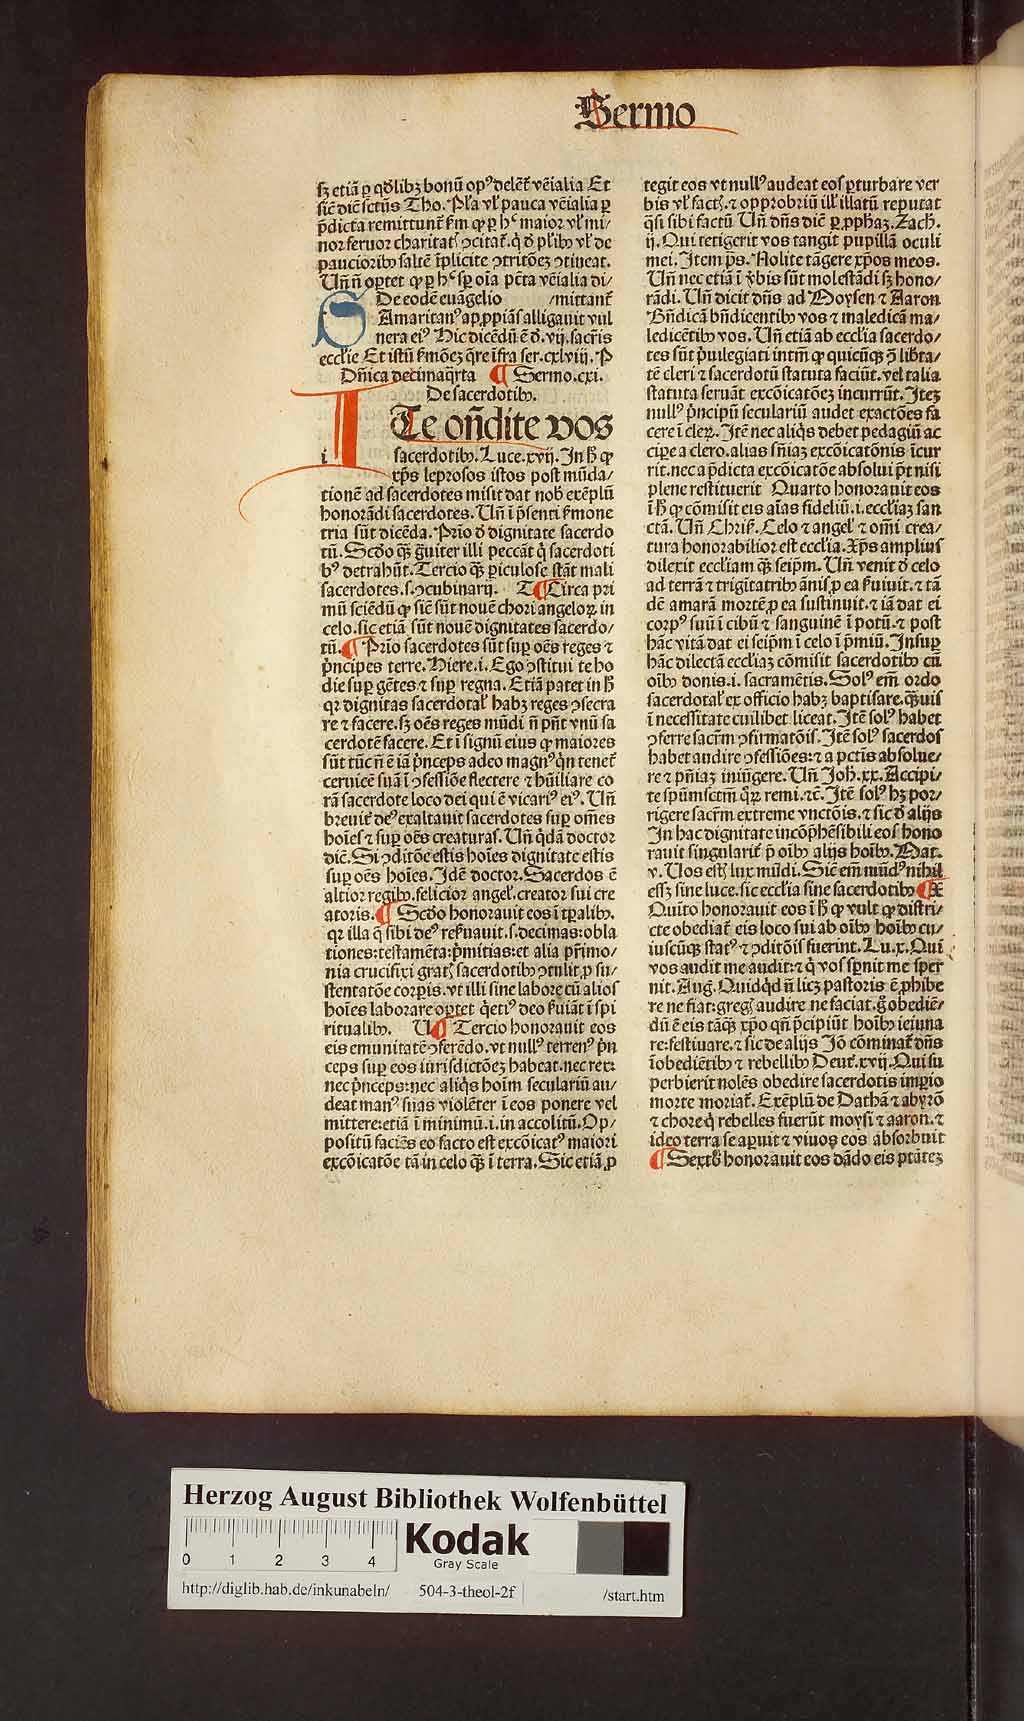 Sermo
sꝫ etiã ꝑ qđlibꝫ bonũ opꝰ delent᷒ vẽialia Et
sic̃ dic̃ sctũs Tho. Pl̃a vl̕ pauca vẽialia ꝑ
p̃dicta remittunt᷒ ẜm ꝙ ꝑ hͨ maior vl̕ mi/
nor feruor charitatꝭ ꝯcitat᷒. q̃ đ pl̃ibꝰ vl̕ de
paucioribꝰ saltẽ ĩplicite ꝯtritõeꝫ ꝯtineat.
Uñ ñ oꝑtet ꝙ ꝑ hͨ sꝑ oĩa pc̃ta vẽialia di/
De eodẽ euãgelio /mittant᷒
SAmaritanꝰ apꝓpiãs alligauit vul
nera eiꝰ Hic dicẽdũ ẽ đ .vij. sacr̃is
eccl̃ie Et istũ ẜmõeꝫ q̃re ĩfra ser. cxlviij. P
Dñica decimaq̃rta ¶ Sermo. cxi.
De sacerdotibꝰ.
ITe oñdite vos
i sacerdotibꝰ. Luce. xvij. In ħ ꝙ
xp̃s leprosos istos post mũda/
tionẽ ad sacerdotes misit dat nob̕ exẽplũ
honorãdi sacerdotes. Uñ ĩ p̃senti ẜmone
tria sũt dicẽda. Prĩo đ dignitate sacerdo
tũ. Scđo q̃ꝫ g̃uiter illi peccãt q̃ sacerdoti
bꝰ detrahũt. Tercio q̃ꝫ ꝑiculose stãt mali
sacerdotes. s. ꝯcubinarij. T ¶ Circa pri
mũ sciẽdũ ꝙ sic̃ sũt nouẽ chori angeloꝝ in
celo. sic etiã sũt nouẽ dignitates sacerdo/
tũ. ¶ Prĩo sacerdotes sũt suꝑ oẽs reges ⁊
p̃ncipes terre. Hiere. i. Ego ꝯstitui te ho
die suꝑ gẽtes ⁊ suꝑ regna. Etiã patet in ħ
qꝛ dignitas sacerdotal̕ habꝫ reges ꝯsecra
re ⁊ facere. sꝫ oẽs reges mũdi ñ pñt vnũ sa
cerdotẽ facere. Et ĩ signũ eius ꝙ maiores
sũt tũc ñ ẽ iã p̃nceps adeo magnꝰ q̃n tenet᷒
ceruicẽ suã ĩ ꝯfessiõe flectere ⁊ hũiliare co
rã sacerdote loco dei qui ẽ vicariꝰ eiꝰ. Uñ
breuit᷒ deꝰ exaltauit sacerdotes suꝑ omẽs
hoĩes ⁊ suꝑ oẽs creaturas. Uñ q̃dã doctor
dic̃. Si ꝯditõe estis hoĩes dignitate estis
suꝑ oẽs hoĩes. Idẽ doctor. Sacerdos ẽ
altior regibꝰ. felicior angel̕. creator sui cre
atoris. ¶ Scđo honorauit eos ĩ tp̃alibꝰ.
qꝛ illa q̃ sibi deꝰ reẜuauit. s. decimas: obla
tiones: testamẽta: p̃mitias: et alia pr̃imo/
nia crucifixi gratꝭ sacerdotibꝰ ꝯtulit. ꝓ su/
stentatõe corꝑis. vt illi sine labore cũ alios
hoĩes laborare oꝑtet q̃etiꝰ deo ẜuiãt ĩ spi
ritualibꝰ. U ¶ Tercio honorauit eos
eis emunitatẽ ꝯferẽdo. vt nullꝰ terrenꝰ p̃n
ceps suꝑ eos iurisdictõeꝫ habeat. nec rex:
nec p̃nceps: nec aliq̃s hoĩm seculariũ au/
deat manꝰ suas violẽter ĩ eos ponere vel
mittere: etiã ĩ minimũ. i. in accolitũ. Op/
positũ faciẽs eo facto est excõicatꝰ maiori
excõicatõe tã in celo q̃ꝫ ĩ terra. Sic etiã ꝓ
tegit eos vt nullꝰ audeat eos ꝑturbare ver
bis vl̕ factꝭ. ⁊ opprobriũ ill̕ illatũ reputat
q̃si sibi factũ Uñ dñs dic̃ ꝑ ꝓpħaꝫ. Zach̕.
ij. Qui tetigerit vos tangit pupillã oculi
mei. Item ps̃. Nolite tãgere xp̃os meos.
Uñ nec etiã ĩ v̕bis sũt molestãdi sꝫ hono/
rãdi. Uñ dicit dñs ad Moysen ⁊ Aaron
Bñdicã bñdicentibꝰ vos ⁊ maledicã ma/
ledicẽtibꝰ vos. Uñ etiã ab eccl̃ia sacerdo/
tes sũt p̃uilegiati intm̃ ꝙ quicũqꝫ ꝯ̃ lib̃ta/
tẽ cleri ⁊ sacerdotũ statuta faciũt. vel talia
statuta seruãt excõicatõeꝫ incurrũt. Iteꝫ
nullꝰ p̃ncipũ seculariũ audet exactões fa
cere ĩ cleꝝ. Itẽ nec aliq̃s debet pedagiũ ac
ciꝑe a clero. alias sñiaꝫ excõicatõnis ĩcur
rit. nec a p̃dicta excõicatõe absolui p̃t nisi
plene restituerit Quarto honorauit eos
ĩ ħ ꝙ cõmisit eis aĩas fideliũ. i. eccl̃iaꝫ san
ctã. Uñ Chris̕. Celo ⁊ angel̕ ⁊ om̃i crea/
tura honorabilior est eccl̃ia. Xp̃s amplius
dilexit eccl̃iam q̃ꝫ seip̃m. Uñ venit đ celo
ad terrã ⁊ trigĩtatribꝰ ãnis ꝓ ea ẜuiuit. ⁊ tã
dẽ amarã mortẽ ꝓ ea sustinuit. ⁊ iã dat ei
corpꝰ suũ ĩ cibũ ⁊ sanguinẽ ĩ potũ. ⁊ post
hãc vitã dat ei seip̃m ĩ celo ĩ p̃miũ. Insuꝑ
hãc dilectã eccl̃iaꝫ cõmisit sacerdotibꝰ cũ
oĩbꝰ donis. i. sacramẽtis. Solꝰ em̃ ordo
sacerdotal̕ ex officio habꝫ baptisare. q̃ꝫuis
ĩ necessitate cuilibet liceat. Itẽ solꝰ habet
ꝯferre sacr̃m ꝯfirmatõis. Itẽ solꝰ sacerdos
habet audire ꝯfessiões: ⁊ a pctis absolue/
re ⁊ pñiaꝫ iniũgere. Uñ Joh̕. xx. Accipi/
te spũmsctm̃ q̃ꝝ remi. ⁊c̃. Itẽ solꝰ hꝫ por/
rigere sacr̃m extreme vnctõis. ⁊ sic đ alijs
In hac dignitate incõp̃hẽsibili eos hono
rauit singularit᷒ p̃ oĩbꝰ alijs hoĩbꝰ. Mat.
v. Uos estꝭ lux mũdi. Sic̃ em̃ mũdꝰ nihil
essꝫ sine luce. sic eccl̃ia sine sacerdotibꝰ ¶ X
Quĩto honorauit eos ĩ ħ ꝙ vult ꝙ distri/
cte obediat᷒ eis loco sui ab oĩbꝰ hoĩbꝰ cu/
iuscũqꝫ statꝰ ⁊ ꝯditõis fuerint. Lu. x. Qui
vos audit me audit: ⁊ q̃ vos sꝑnit me sper
nit. Aug̃. Quidq̃d ñ licꝫ pastoris ẽ ꝓhibe
re ne fiat: gregꝭ audire ne faciat. g̃ obediẽ/
dũ ẽ eis tãq̃ꝫ xp̃o qñ p̃cipiũt hoĩbꝰ ieiuna
re: festiuare. ⁊ sic de alijs Jõ cõminat᷒ dñs
ĩobediẽtibꝰ ⁊ rebellibꝰ Deut̕. xvij. Qui su
perbierit nolẽs obedire sacerdotis imꝑio
morte moriat᷒. Exẽplũ de Dathã ⁊ abyrõ
⁊ chore q̃ rebelles fuerũt moysi ⁊ aaron. ⁊
ideo terra se aꝑuit ⁊ viuos eos absorbuit
¶ Sextõ honorauit eos dãdo eis ptãteꝫ
Herzog August Bibliothek Wolfenbüttel
0 1 2 3 4
Kodak
Gray Scale
http://diglib.hab.de/inkunabeln/ 504-3-theol-2f /start.htm